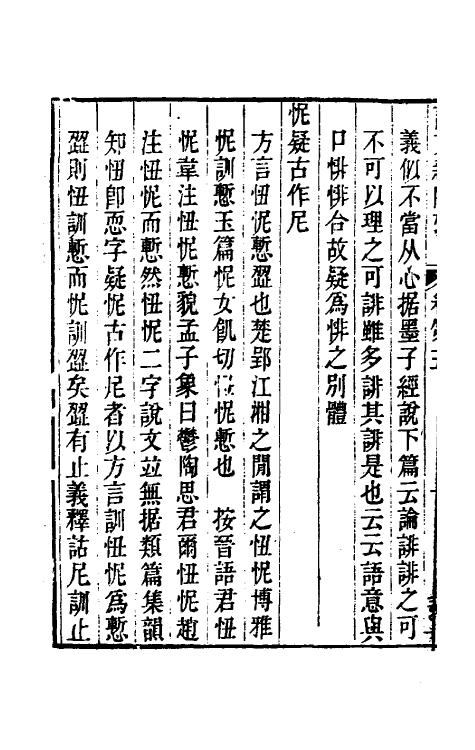 義似不當从心据墨子經說下篇云論誹誹之可
不可以理之可誹雖多誹其誹是也云云語意與
口悱悱合故疑爲悱之別體
怩疑古作尼
方言忸怩慙歰也楚郢江湘之閒謂之忸怩博雅
怩訓慙玉篇怩女飢切忸怩慙也　按晉語君忸
怩韋注忸怩慙貌孟子象曰鬱陶思君爾忸怩趙
注忸怩而慙然忸怩二字說文並無据類篇集韻
知忸卽恧字疑怩古作尼者以方言訓忸怩爲慙
歰則忸訓慙而怩訓歰矣歰有止義釋詁尼訓止